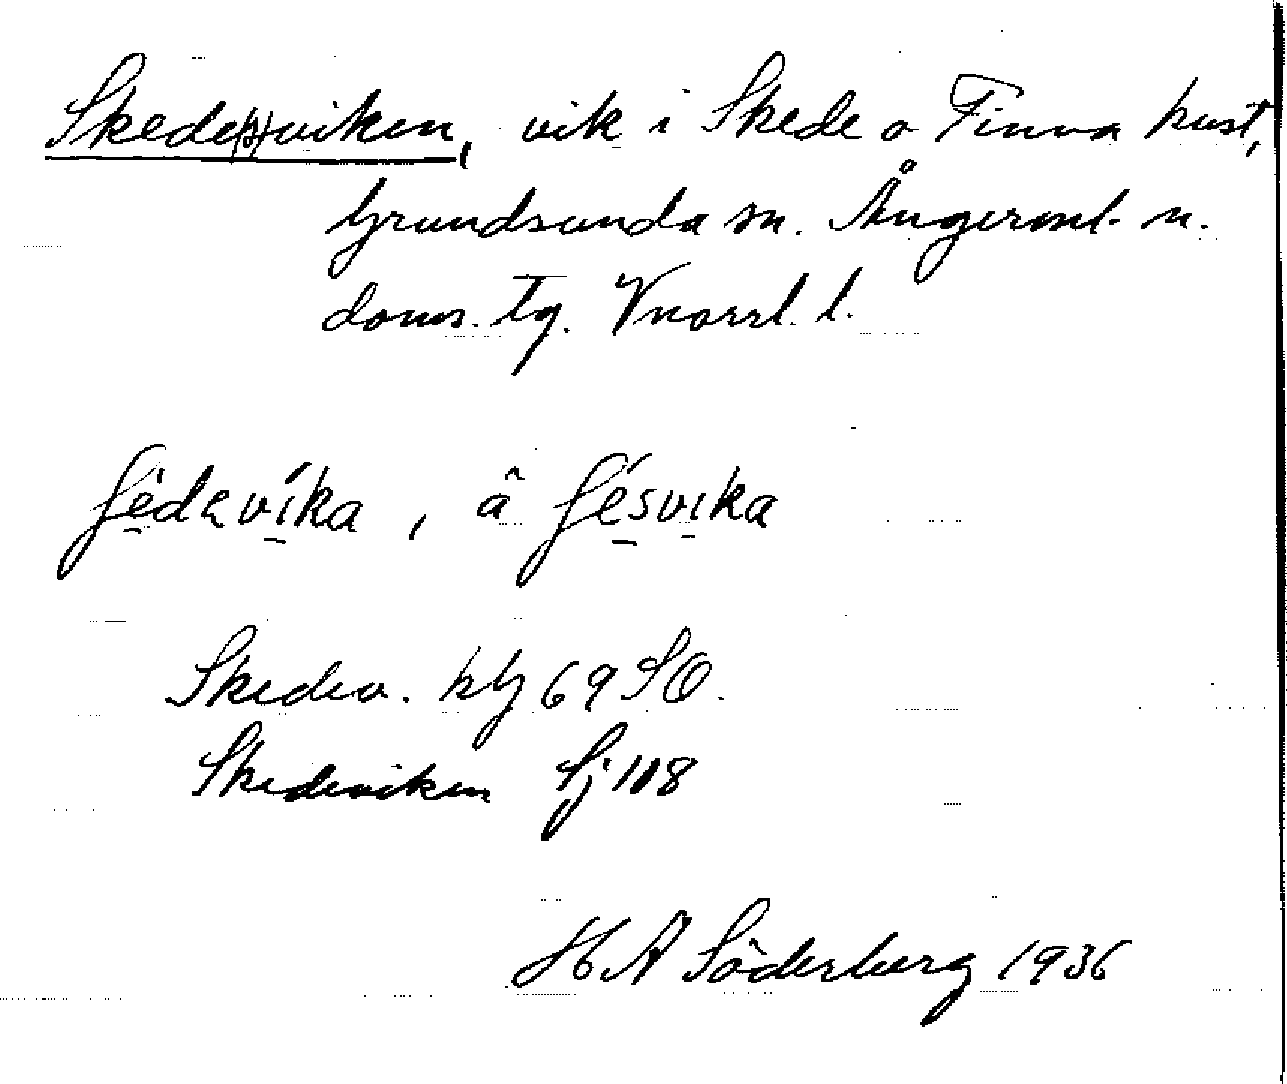 Skede(s)viken, vik i Skede o Finna kust,
Grundsunda sn. Ångerml. n.
doms. tg. Vnorrl. l.
ʃèdavíka, â ʃésvika
Skedev. kbg 69 SO.
Skedeviken Sj 108
H A Söderberg 1936